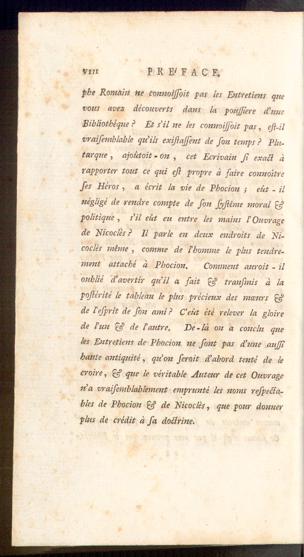 VIII PRÉFACE.
phe Romain ne connoiſſoit pas les Entretiens que
vous avez découverts dans la pouſſiere d'une
Bibliothéque ? Et s'il ne les connoiſſoit pas, eſt-il
vraiſemblable qu'ils exiſtaſſent de ſon temps ? Plu-
tarque, ajoûtoit-on, cet Ecrivain ſi exact à
rapporter tout ce qui eſt propre à faire connoître
ſes Héros, a écrit la vie de Phocion ; eût-il
négligé de rendre compte de ſon ſyſtême moral &
politique, s'il eût eu entre les mains l'Ouvrage
de Nicoclès ? Il parle en deux endroits de Ni-
coclès même, comme de l'homme le plus tendre-
ment attaché à Phocion. Comment auroit-il
oublié d'avertir qu'il a fait & tranſmis à la
poſtérité le tableau le plus précieux des mœurs &
de l'eſprit de ſon ami ? C'eût été relever la gloire
de l'un & de l'autre. De-là on a conclu que
les Entretiens de Phocion ne ſont pas d'une auſſi
haute antiquité, qu'on ſeroit d'abord tenté de le
croire, & que le véritable Auteur de cet Ouvrage
n'a vraiſemblablement emprunté les noms reſpecta-
bles de Phocion & de Nicoclès, que pour donner
plus de crédit à ſa doctrine.